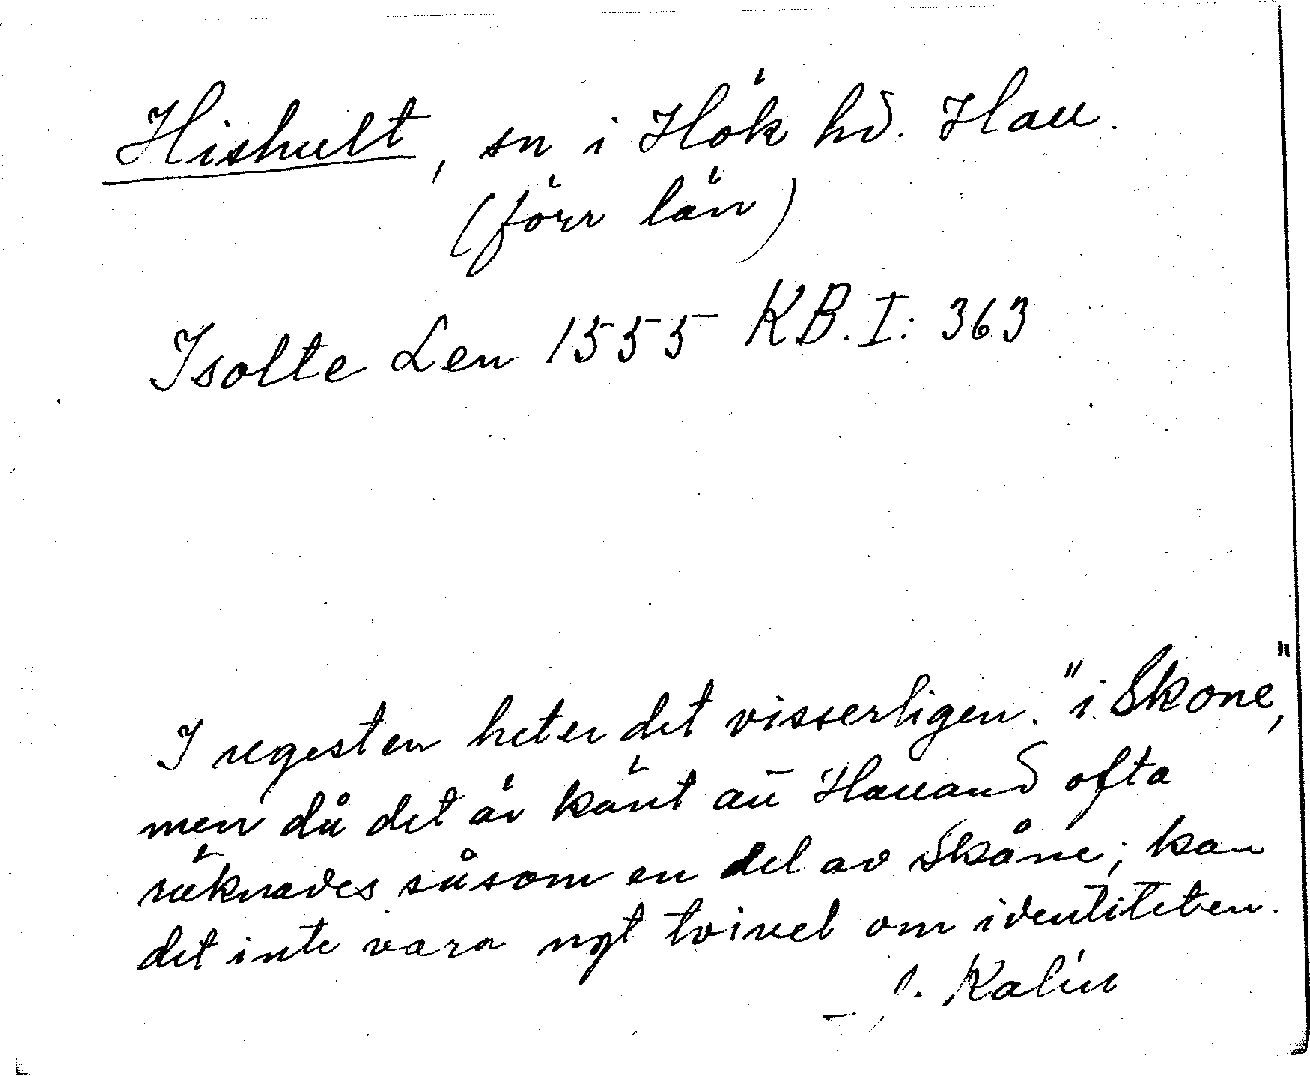 Hishult, sn i Hök hd. Hall.
(förr län)
Isolte Len 1555 KB.I: 363
I regesten heter det visserligen "i Skone",
men då det är känt att Halland ofta
räknades såsom en del av Skåne, kan
det inte vara ngt tvivel om identiteten.
J. Kalén